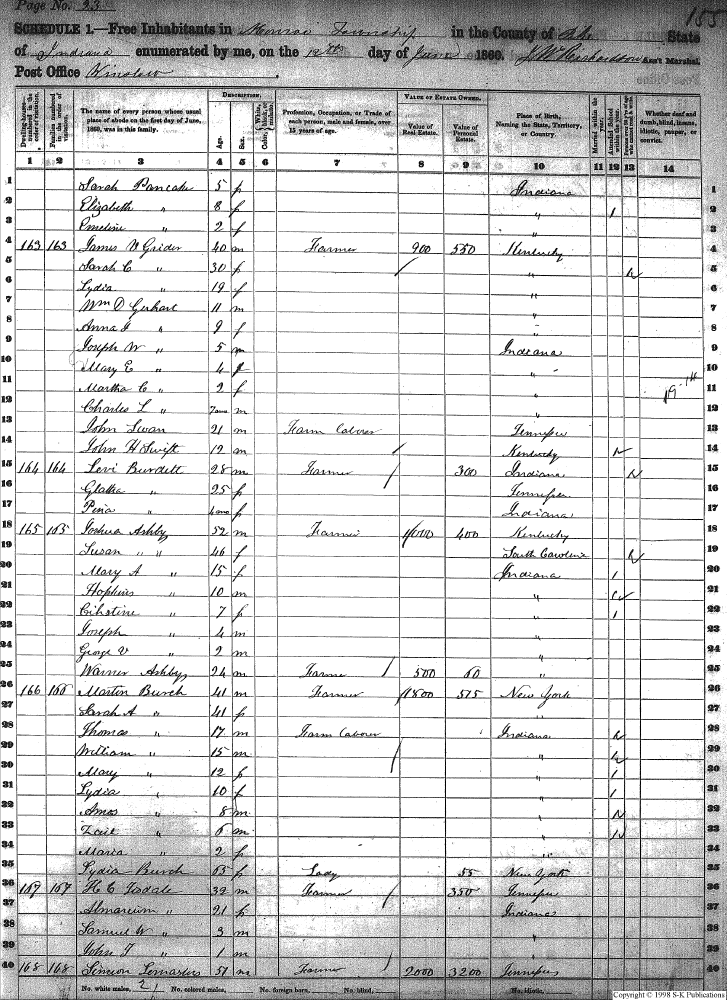 Page No. 23
153
SCHEDULE 1.—Free Inhabitants in Monroe Township in the County of Pike State
of Indiana enumerated by me, on the 12th day of June 1860. Ass't Marshal.
Post Office Winslow
DESCRIPTION.
VALUE OF ESTATE OWNED.
Dwelling-houses—numbered in the order of visitation.
Families numbered in the order of visitation.
The name of every person whose usual place of abode on the first day of June, 1860, was in this family.
Age.
Sex.
Color, White, black, or mulatto.
Profession, Occupation, or Trade of each person, male and female, over 15 years of age.
Value of Real Estate.
Value of Personal Estate.
Place of Birth, Naming the State, Territory, or Country.
Married within the year.
Attended School within the year.
Whether deaf and dumb, blind, insane, idiotic, pauper, or convict.
1 2 3 4 5 6 7 8 9 10 11 12 13 14
1 Sarah Pancake 5 f Indiana 1
2 Elizabeth " 8 f " 1 2
3 Emeline " 2 f " 3
4 163 163 James W Grider 40 m Farmer 900 550 Kentucky 4
5 Sarah C " 30 f " 5
6 Lydia " 19 f " 6
7 Wm D Gerhart 11 m " 7
8 Anna " 9 f " 8
9 Joseph W " 5 m Indiana 9
10 Mary E " 4 f " 10
11 Martha C " 2 f " 11
12 Charles L " m " 12
13 John Swan 21 m Farm Laborer Tennessee 13
14 John H Swift 12 m Kentucky 14
15 164 164 Levi Burdett 28 m Farmer 300 Indiana 15
16 " 25 f Tennessee 16
17 " 4 mo f Indiana 17
18 165 165 Joshua Ashby 52 m Farmer 1000 400 Kentucky 18
19 Susan " " 46 f South Carolina 19
20 Mary A " 15 f Indiana 1 20
21 Hopkins " 10 m " 21
22 " 7 f " 1 22
23 Joseph " 4 m " 23
24 George V " 2 m " 24
25 Warner Ashby 24 m Farmer 500 60 " 25
26 166 166 Martin Burch 41 m Farmer 1800 515 New York 26
27 Sarah A " 41 f " 27
28 Thomas " 17 m Farm Labour Indiana 28
29 William " 15 m " 29
30 Mary " 12 f " 1 30
31 Lydia " 10 f " 1 31
32 Amos " 8 m " 32
33 " 6 m " 33
34 Maria " 2 f " 34
35 Lydia Burch 65 f Lady 55 New York 35
36 167 167 H C Tisdale 39 m Farmer 350 Tennessee 36
37 " 21 f Indiana 37
38 Samuel W " 3 m " 38
39 John T " 1 m " 39
40 168 168 Simeon Lemasters 51 m Farmer 2000 3200 Tennessee 40
No. white males, 21 No. colored males, No. foreign born, No. blind, No. idiotic,
Copyright © 1998 S-K Publications